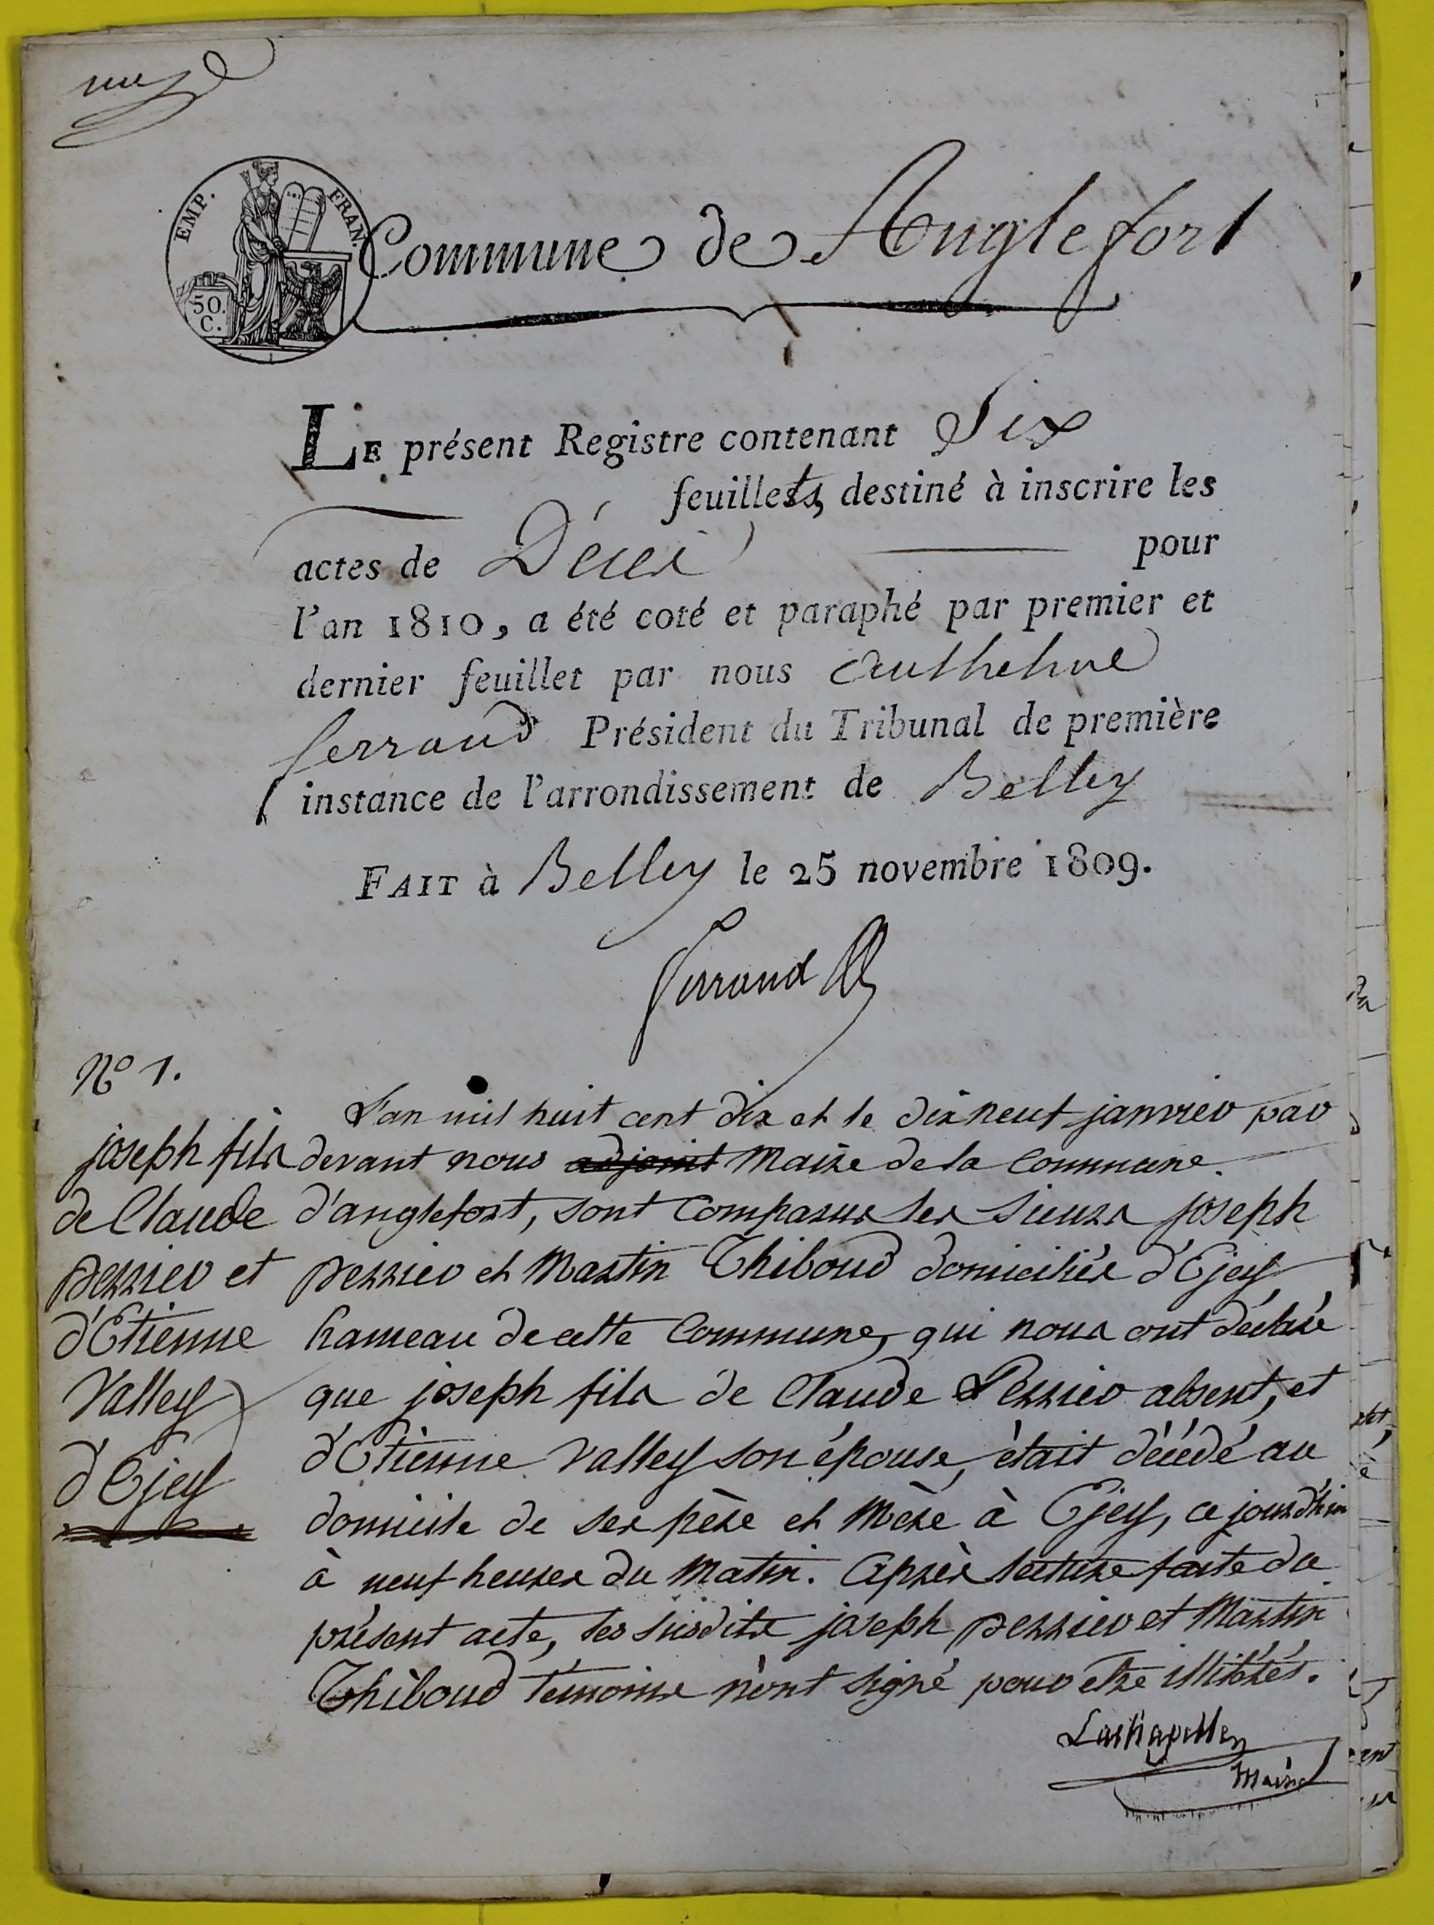 EMP. FRAN.
50. C.
Commune de Anglefort
LE présent Registre contenant Six
feuillets, destiné à inscrire les
actes de Décès pour
l'an 1810, a été coté et paraphé par premier et
dernier feuillet par nous Anthelme
ferrand Président du Tribunal de première
instance de l'arrondissement de Belley
FAIT à Belley le 25 novembre 1809.
ferrand
N° 1.
joseph fils
de Claude
perrier et
d'Etienne
Valley
d'Ejey
L'an mil huit cent dix et le dix neuf janvier par
devant nous adjoint Maire de la Commune.
d'anglefort, sont Comparus les sieurs joseph
perrier et Martin Thiboud domiciliés d'Ejey
hameau de cette Commune, qui nous ont déclaré
que joseph fils de Claude Perrier absent, et
d'Etienne Valley son épouse, était décédé au
domicile de ses père et Mère à Ejey, ce jourd'hui
à neuf heures du Matin. Après lecture faite du
présent acte, les susdits joseph perrier et Martin
Thiboud témoins n'ont signé pour etre illitérés.
Lachapelle
Maire